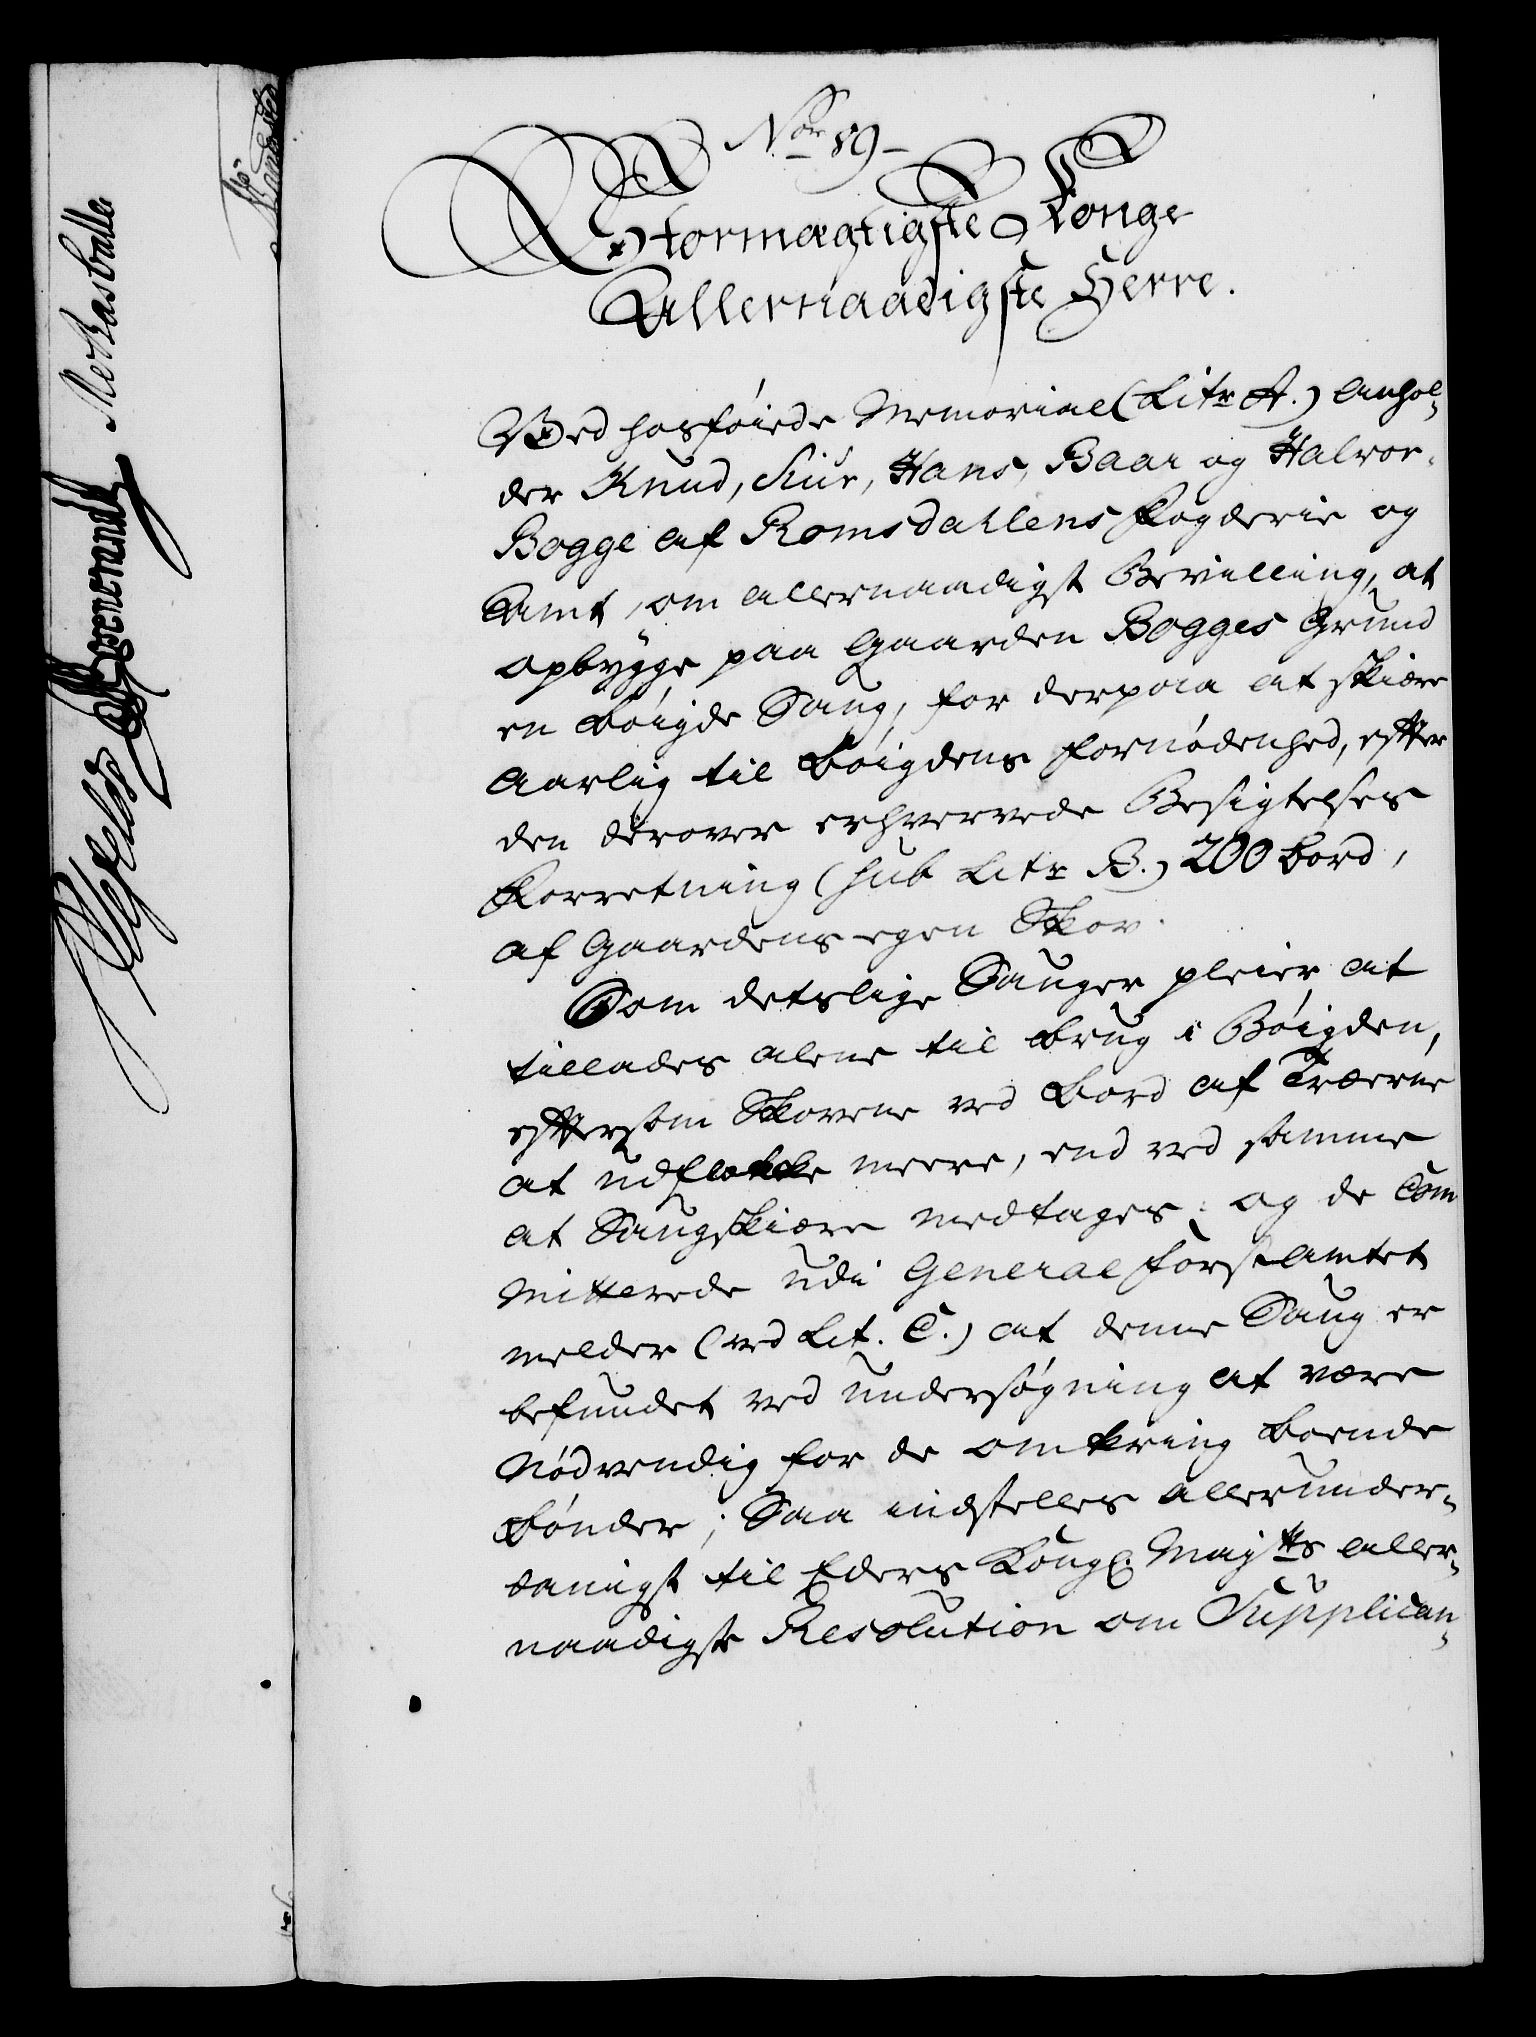 No 89
Stormægtigste Konge
Allernaadigste Herre.
Ved hosføiede Memorial (Litr A.) anhol-
der Knud, Siur, Hans, Baar og Halvor
Bogge af Romsdahlens Fogderie og
Amt, om allernaadigst Bevilling, at
opbygge paa Gaarden Bogges Grund
en bøigde Saug, for derpaa at skiære
aarlig til Bøigdens Fornødenhed, efter
den derover erhvervede Besigtelses
Forretning (sub Litr B.) 200 bord,
af Gaardens egen Skov.
Som detslige Sauger pleier at
tillades alene til brug i Bøigden,
eftersom Skovene ved bord af Træerne
at udflække meere, end ved samme
at Saugskiære medtages; og de Com
mitterede udi General Forst amtet
melder (ved Lit. C.) at denne Saug er
befundet ved undersøgning at være
nødvendig for de omkring boende
bønder; Saa indstelles allerunder-
danigst til Eders Kongl. Majts aller-
naadigste Resolution om Supplican-